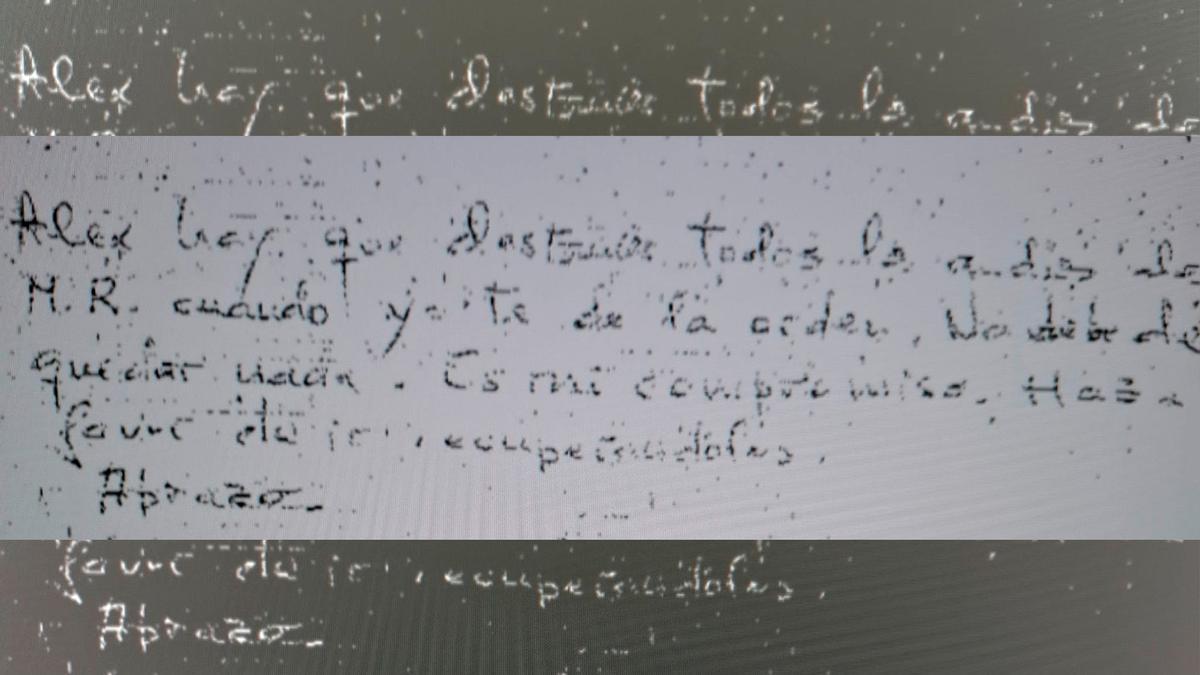 Alex hay que destruir todos
Alex hay que destruir todos los audios de
M.R. cuando yo te de la orden. No debe de
quedar nada. Es mi compromiso. Haz
favor de ir recuperandolos.
Abrazo
favor de ir recuperandolos.
Abrazo